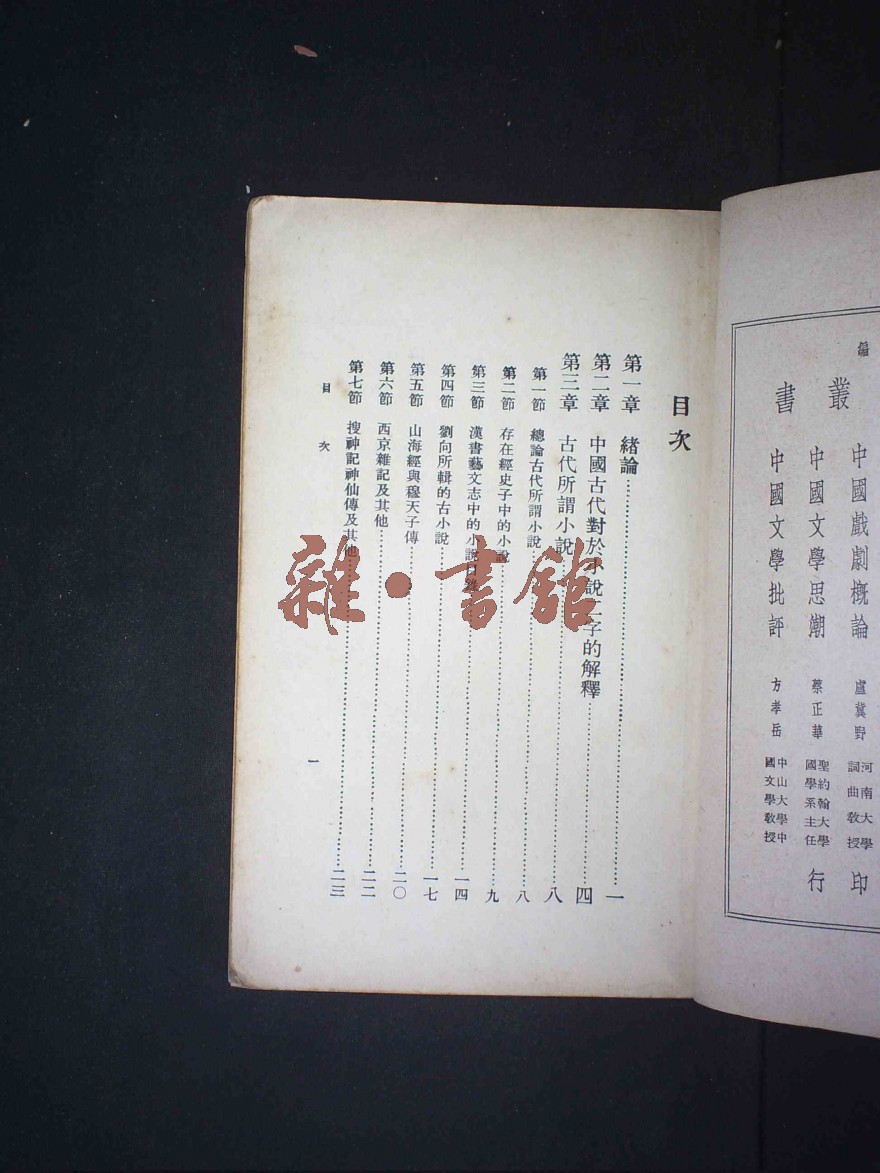 編
叢
書
中國戲劇概論 盧冀野 河南大學詞曲教授
中國文學思潮 蔡正華 聖約翰大學國學系主任
中國文學批評 方孝岳 中山大學中國文學教授
印
行
目次
第一章 緒論 一
第二章 中國古代對於小說二字的解釋 四
第三章 古代所謂小說 八
第一節 總論古代所謂小說 八
第二節 存在經史子中的小說 九
第三節 漢書藝文志中的小說目錄 一四
第四節 劉向所輯的古小說 一七
第五節 山海經與穆天子傳 二〇
第六節 西京雜記及其他 二二
第七節 搜神記神仙傳及其他 二三
目 次
一
雜·書館